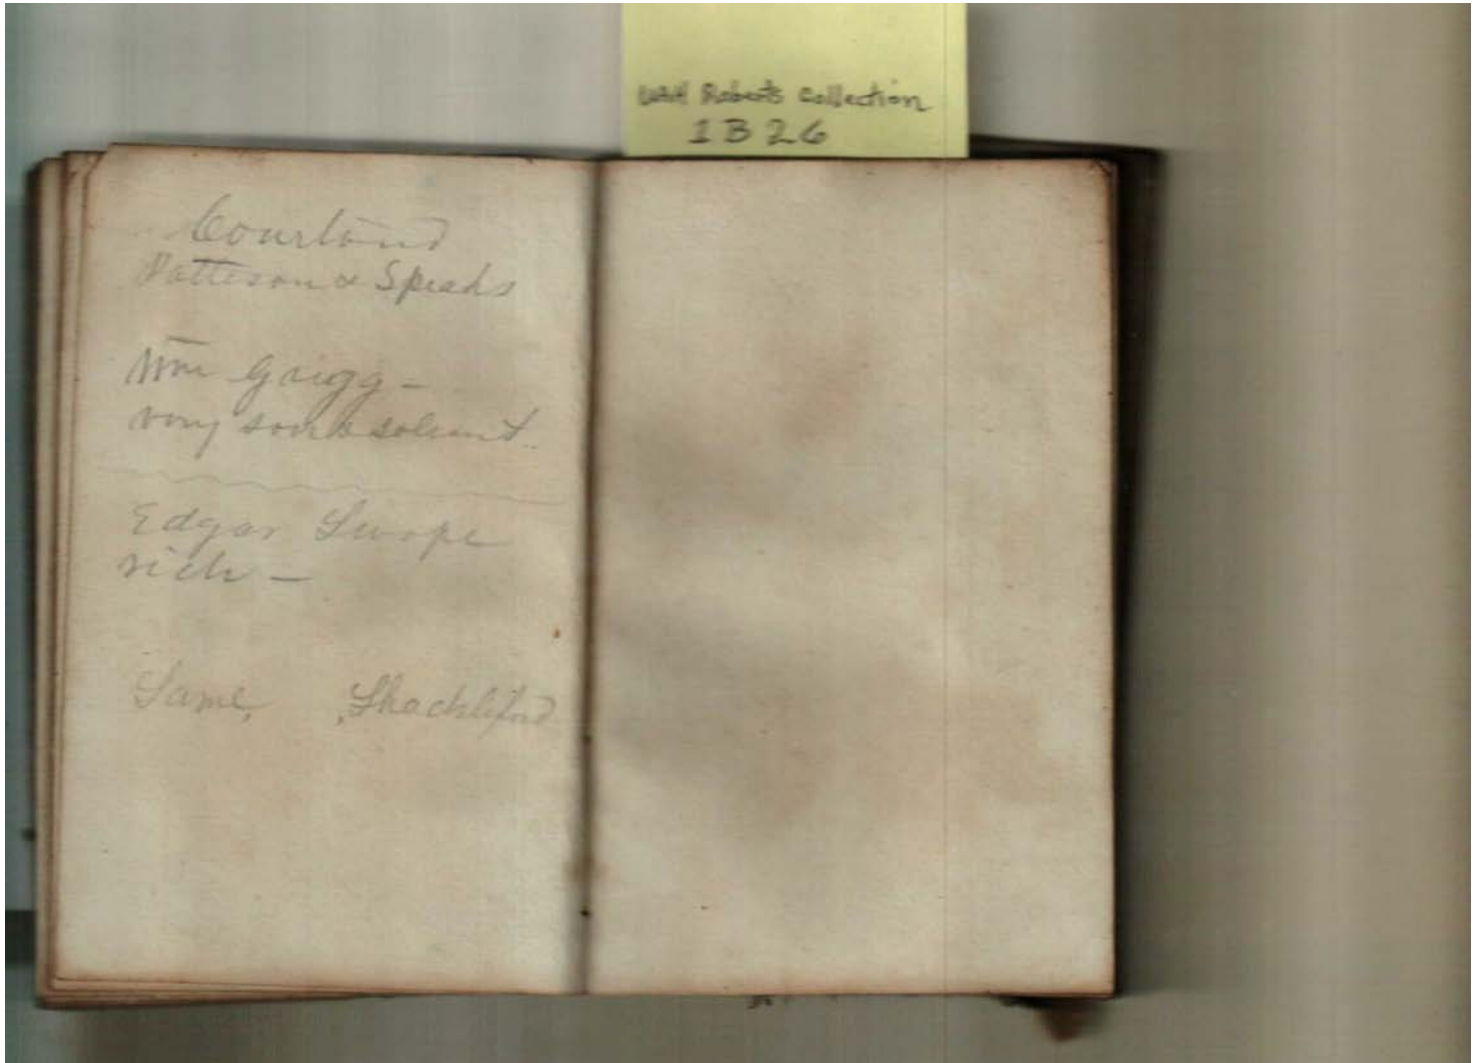 UAH Roberts Collection
1B26
Courtland
Patteson & Speaks
Wm Grigg –
very
solvent
Edgar Swope
rich –
Same, Shackleford